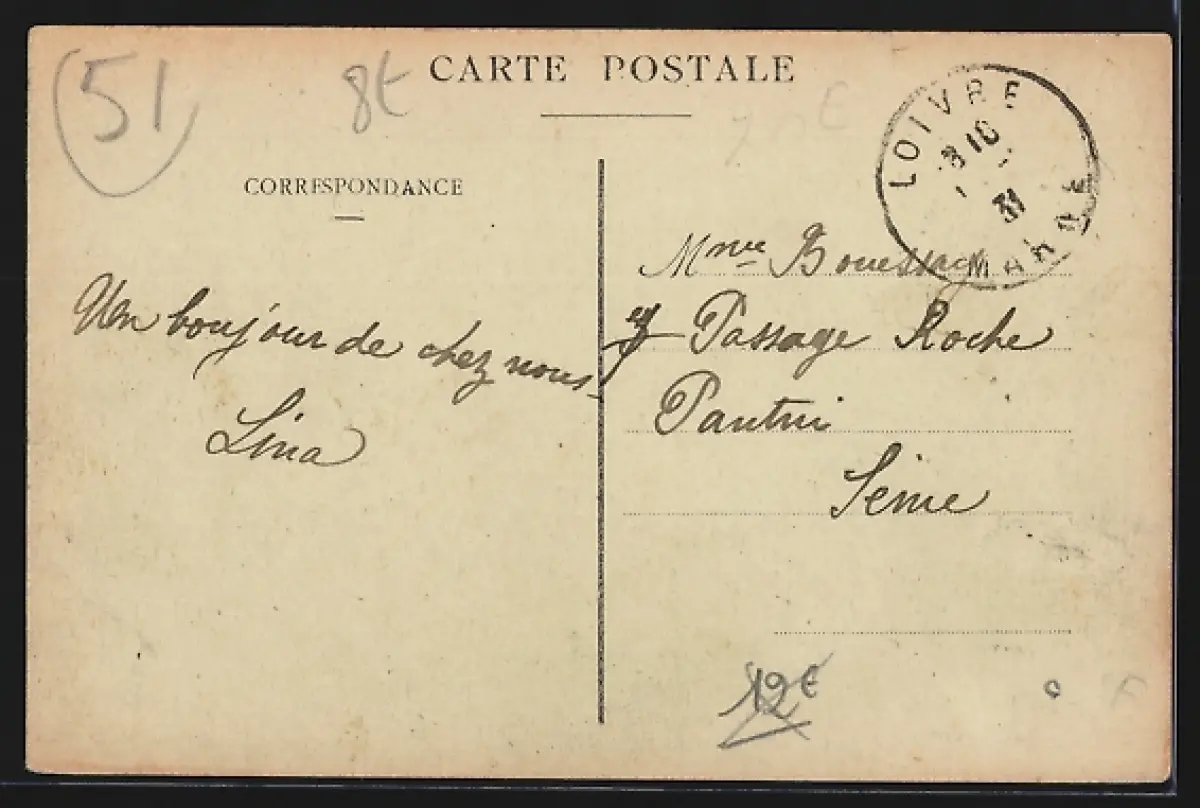 51
8€
CARTE POSTALE
CORRESPONDANCE
LOIVRE
MARNE
10
31
Mme
Passage Roche
Pantin
Seine
Un bonjour de chez nous
Lina
12€